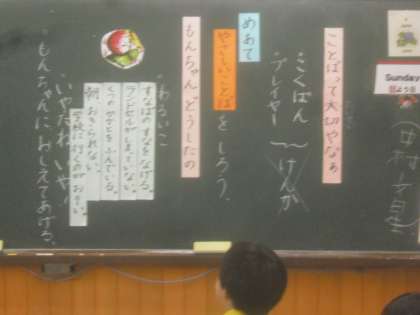 Sunday
日よう日
ことばって大切やなぁ
こくばん
プレイヤー 〜 けんか
めあて
やさしいことばをしろう。
もんちゃんどうしたの
わるいこ
すなばのすなをなげる。
ランドセルがしまっていない。
くつのかかとをふんでいる。
朝、おきられない。
学校に行くのがおそい。
いやだね いや！
もんちゃんにおしえてあげる。